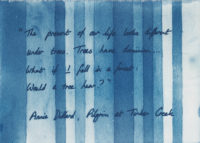 "The present of our life looks different
under trees. Trees have dominion...
What if I fell in a forest:
Would a tree hear?"
Annie Dillard, Pilgrim at Tinker Creek